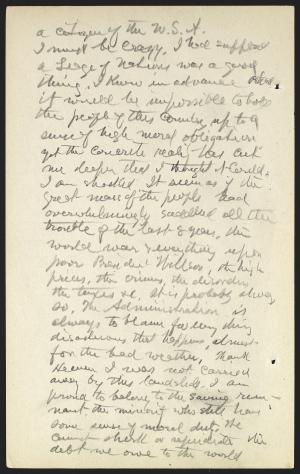 a citizen of the U.S.A.
I must be crazy. I had supposed
a League of Nations was a good
thing. I knew in advance
it would be impossible to hold
the people of this country up to a
sense of high moral obligation
yet the concrete reality has cut
me deeper than I thought it could.
I am shocked. It seems as if the
great mass of the people had
overwhelmingly saddled all the
trouble of the last 8 years, the
world war & everything upon
poor President Wilson, the high
prices, the crimes, the disorders
the taxes &c. It is probably always
so, the Administration is
always to blame for everything
disastrous that happens, almost
for the bad weather, Thank
Heaven I was not carried
away by this landslide. I am
proud to belong to the saving rem-
nant the minority who still have
some sense of moral duty, who
cannot shirk or repudiate the
debt we owe to the world